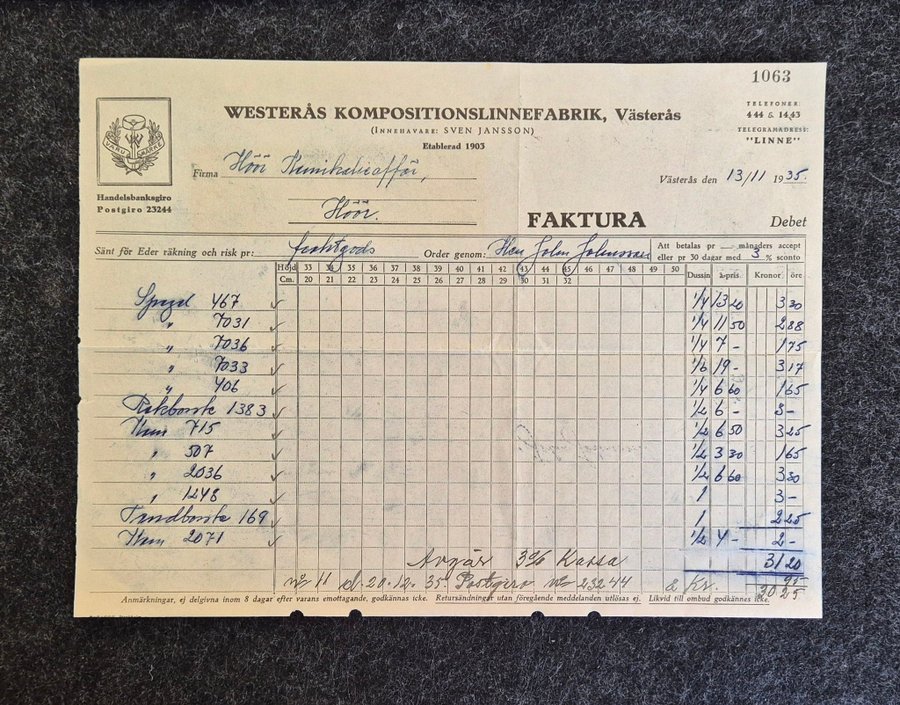 1063
WESTERÅS KOMPOSITIONSLINNEFABRIK, Västerås
(INNEHAVARE: SVEN JANSSON)
Etablerad 1903
TELEFONER:
444 & 1443
TELEGRAMADRESS:
"LINNE"
VARU MÄRKE
Handelsbanksgiro
Postgiro 23244
Firma Höör Kemikalieaffär,
Höör.
Västerås den 13/11 1935.
FAKTURA
Debet
Sänt för Eder räkning och risk pr: fraktgods Order genom: Herr John Johnsson
Att betalas pr — månaders accept
eller pr 30 dagar med 3 % sconto
Höjd 33 34 35 36 37 38 39 40 41 42 43 44 45 46 47 48 49 50 Dussin à-pris Kronor öre
Cm. 20 21 22 23 24 25 26 27 28 29 30 31 32
Spegel 467 ✓ 1/4 13 20 3 30
" 7031 ✓ 1/4 11 50 2 88
" 7036 ✓ 1/4 7 - 1 75
" 7033 ✓ 1/6 19 - 3 17
" 406 ✓ 1/4 6 60 1 65
Rakborste 1383 ✓ 1/2 6 - 3 -
Kam 715 ✓ 1/2 6 50 3 25
" 507 ✓ 1/2 3 30 1 65
" 2036 ✓ 1/2 6 60 3 30
" 1248 ✓ 1 3 -
Tandborste 169 ✓ 1 2 25
Kam 2071 ✓ 1/2 4 - 2 -
31 20
Avgår 3% Kassa 95
nr 11 d. 20-12-35 Postgiro nr 23244 à Kr. 30 25
Anmärkningar, ej delgivna inom 8 dagar efter varans emottagande, godkännas icke. Retursändningar utan föregående meddelanden utlösas ej. Likvid till ombud godkännes icke.